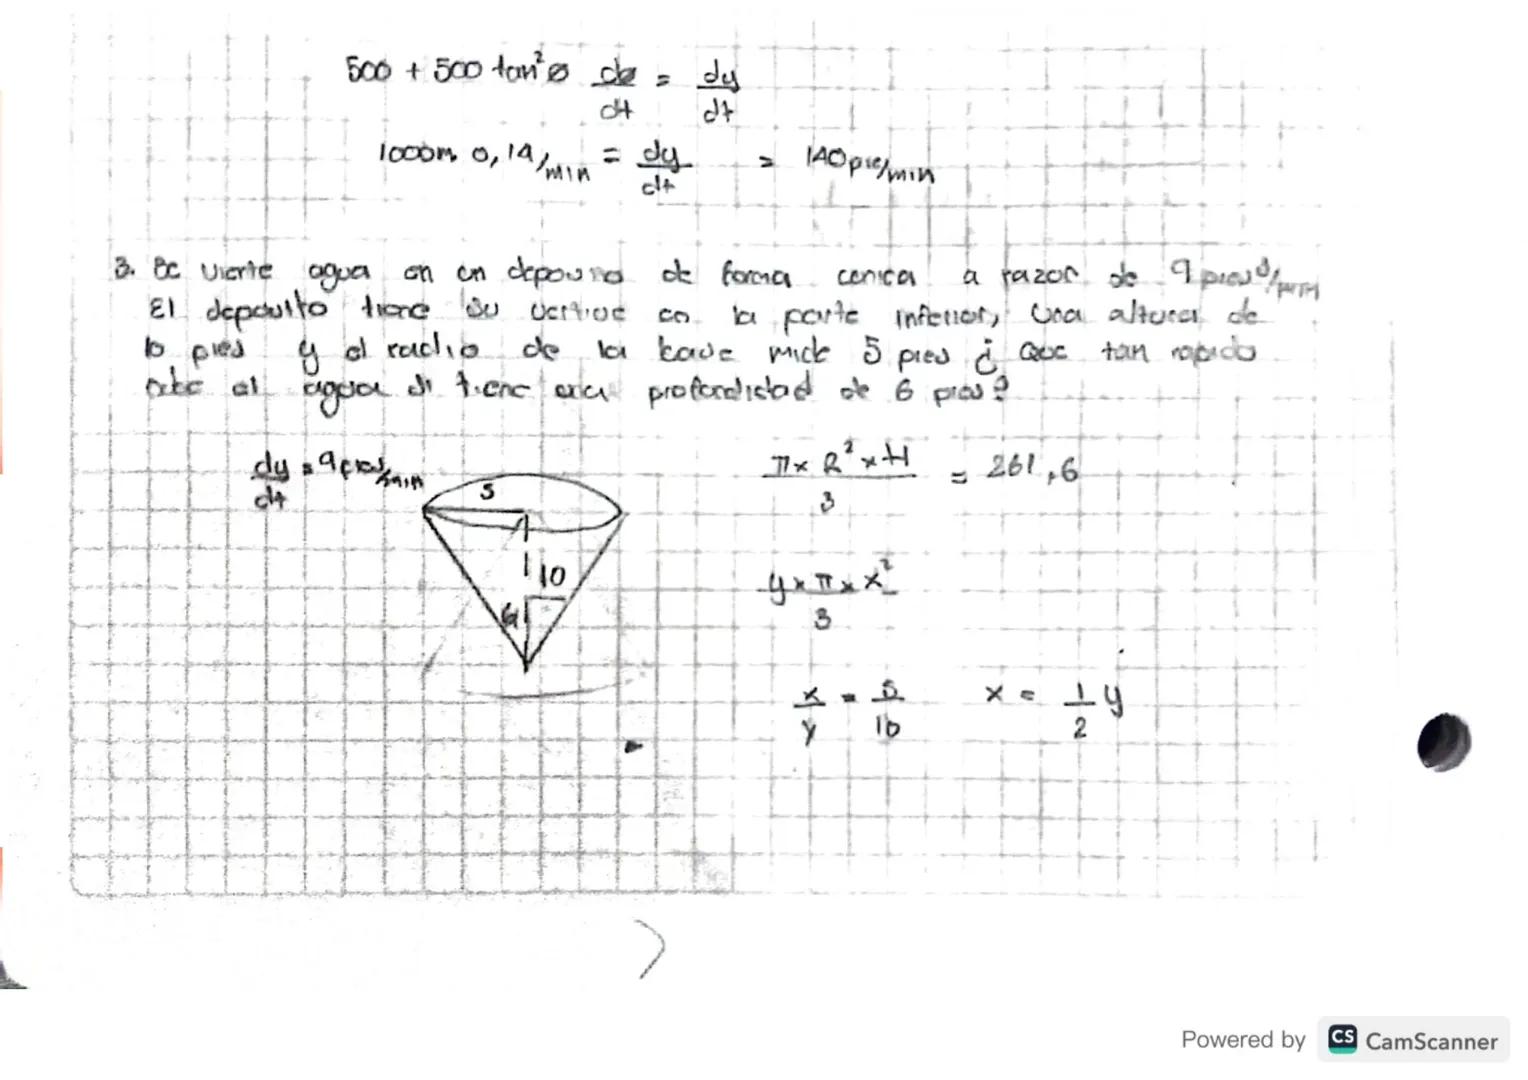 500 + 500 tan²ø dø/dt = dy/dt
1000m 0,14/min = dy/dt = 140 pie/min
3. Se vierte agua en un deposito de forma conica a razon de 9 pies³/min
El deposito tiene su vertice en la parte inferior, una altura de
10 pies y el radio de la base mide 5 pies ¿ Que tan rapido
sube el agua si tiene una profundidad de 6 pies?
dy/dt = 9 pies/min
5
10
6
π x R² x H / 3 = 261,6
y x π x x² / 3
x/y = 5/10 x = 1/2 y
Powered by CS CamScanner